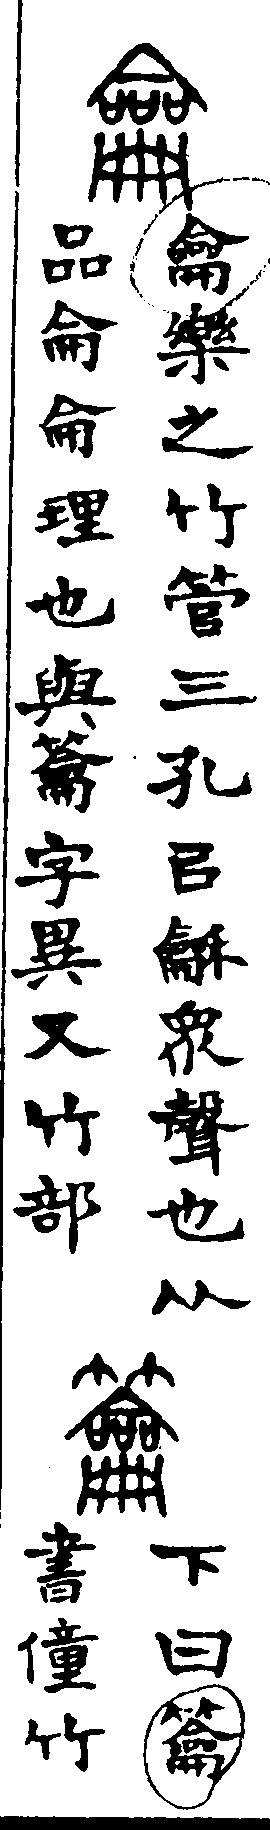 龠
龠樂之竹管三孔㠯龢眾聲也从
品侖侖理也與籥字異又竹部
籥
下曰籥
書僮竹